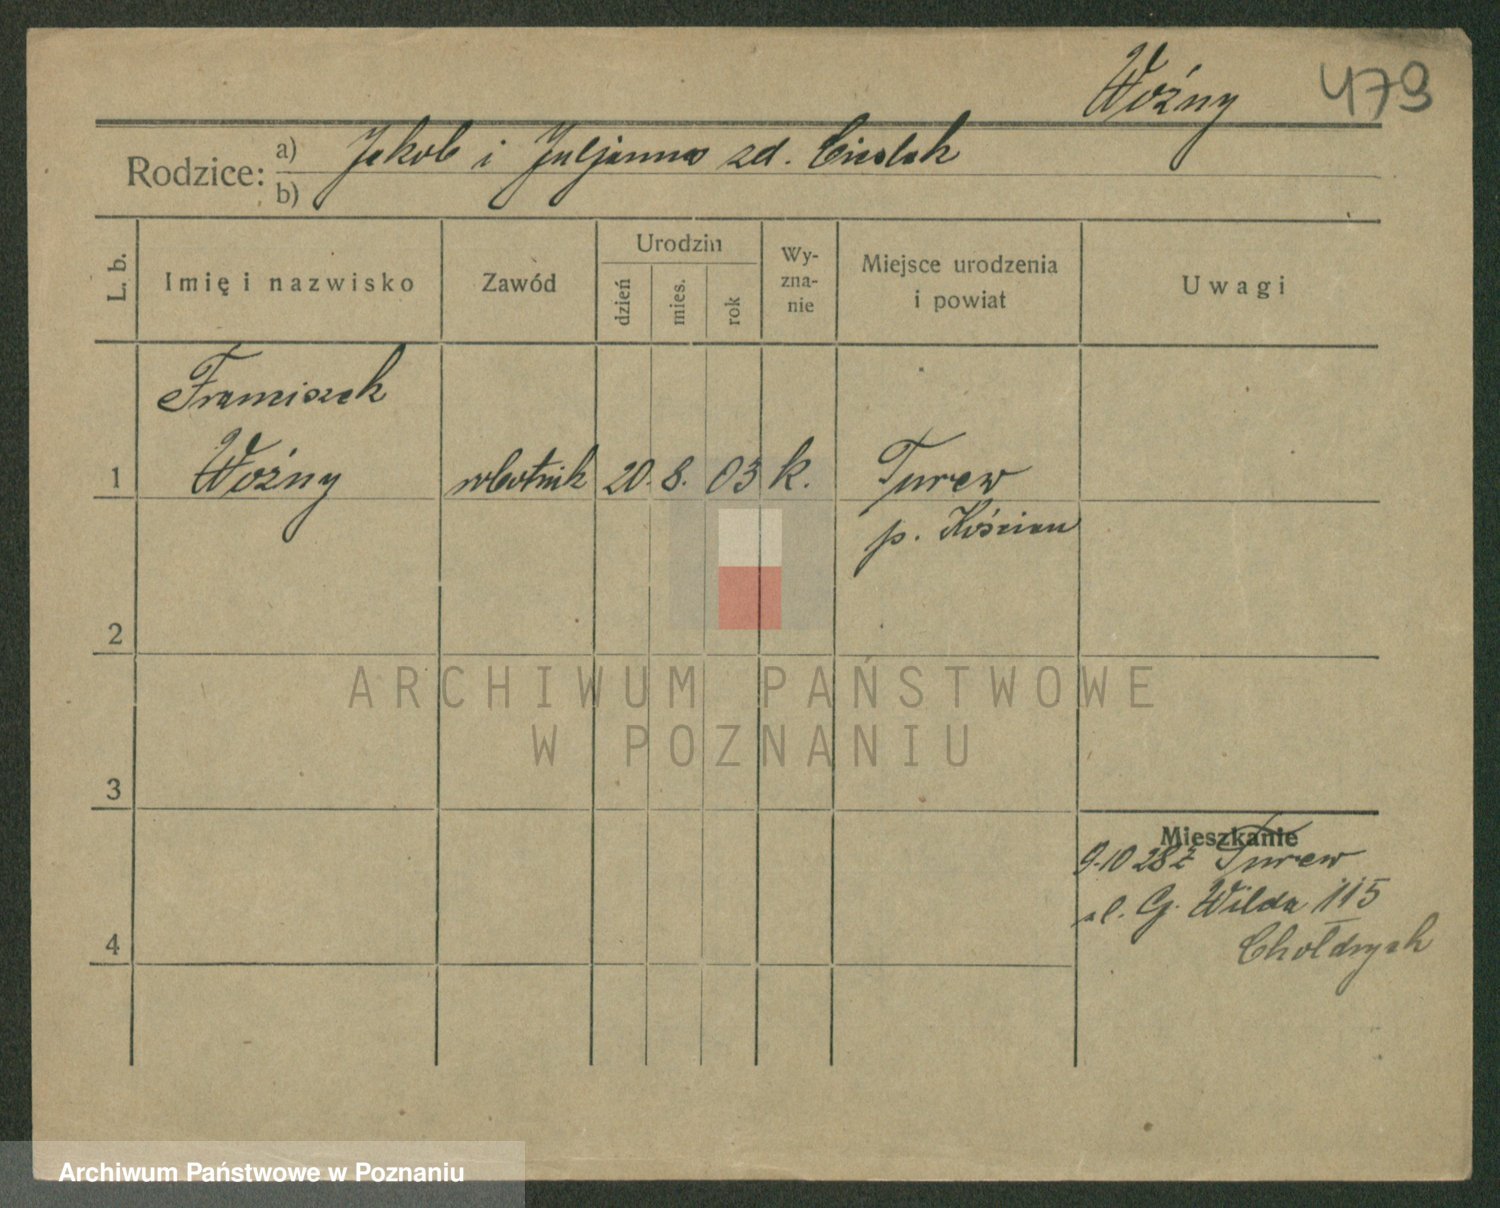 Woźny 479
Rodzice: a) Jakob i Juljanna zd. Cieslak
b)
L. b. Imię i nazwisko Zawód Urodzin dzień mies. rok Wy-zna-nie Miejsce urodzenia i powiat Uwagi
Franciszek
1 Woźny robotnik 20. 8. 03 k. Turew
p. Kościan
2
3
Mieszkanie
9.10 28 z Turew
G. Wilda 115
4
ARCHIWUM PAŃSTWOWE
W POZNANIU
Archiwum Państwowe w Poznaniu